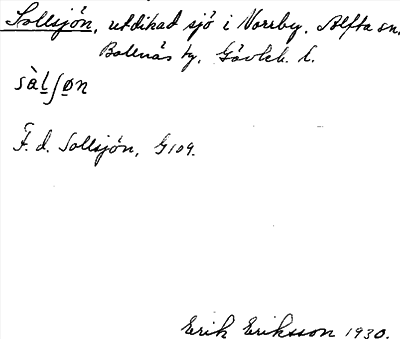 Sollsjön, utdikad sjö i Norrby. Alfta sn.
Bollnäs tg, Gävleb. l.
sàl̲ʃø̲n
F. d. Sollsjön, G109.
Erik Eriksson 1930.